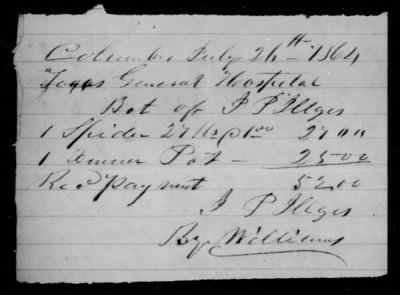 Columbus July 26th 1864
Texas General Hospital
Bot of J P Illges
1 Spider 27 lbs @ 1.00 27 00
1 Dinner Pot — 25 00
Recd payment 52 00
J P Illges
By Williams